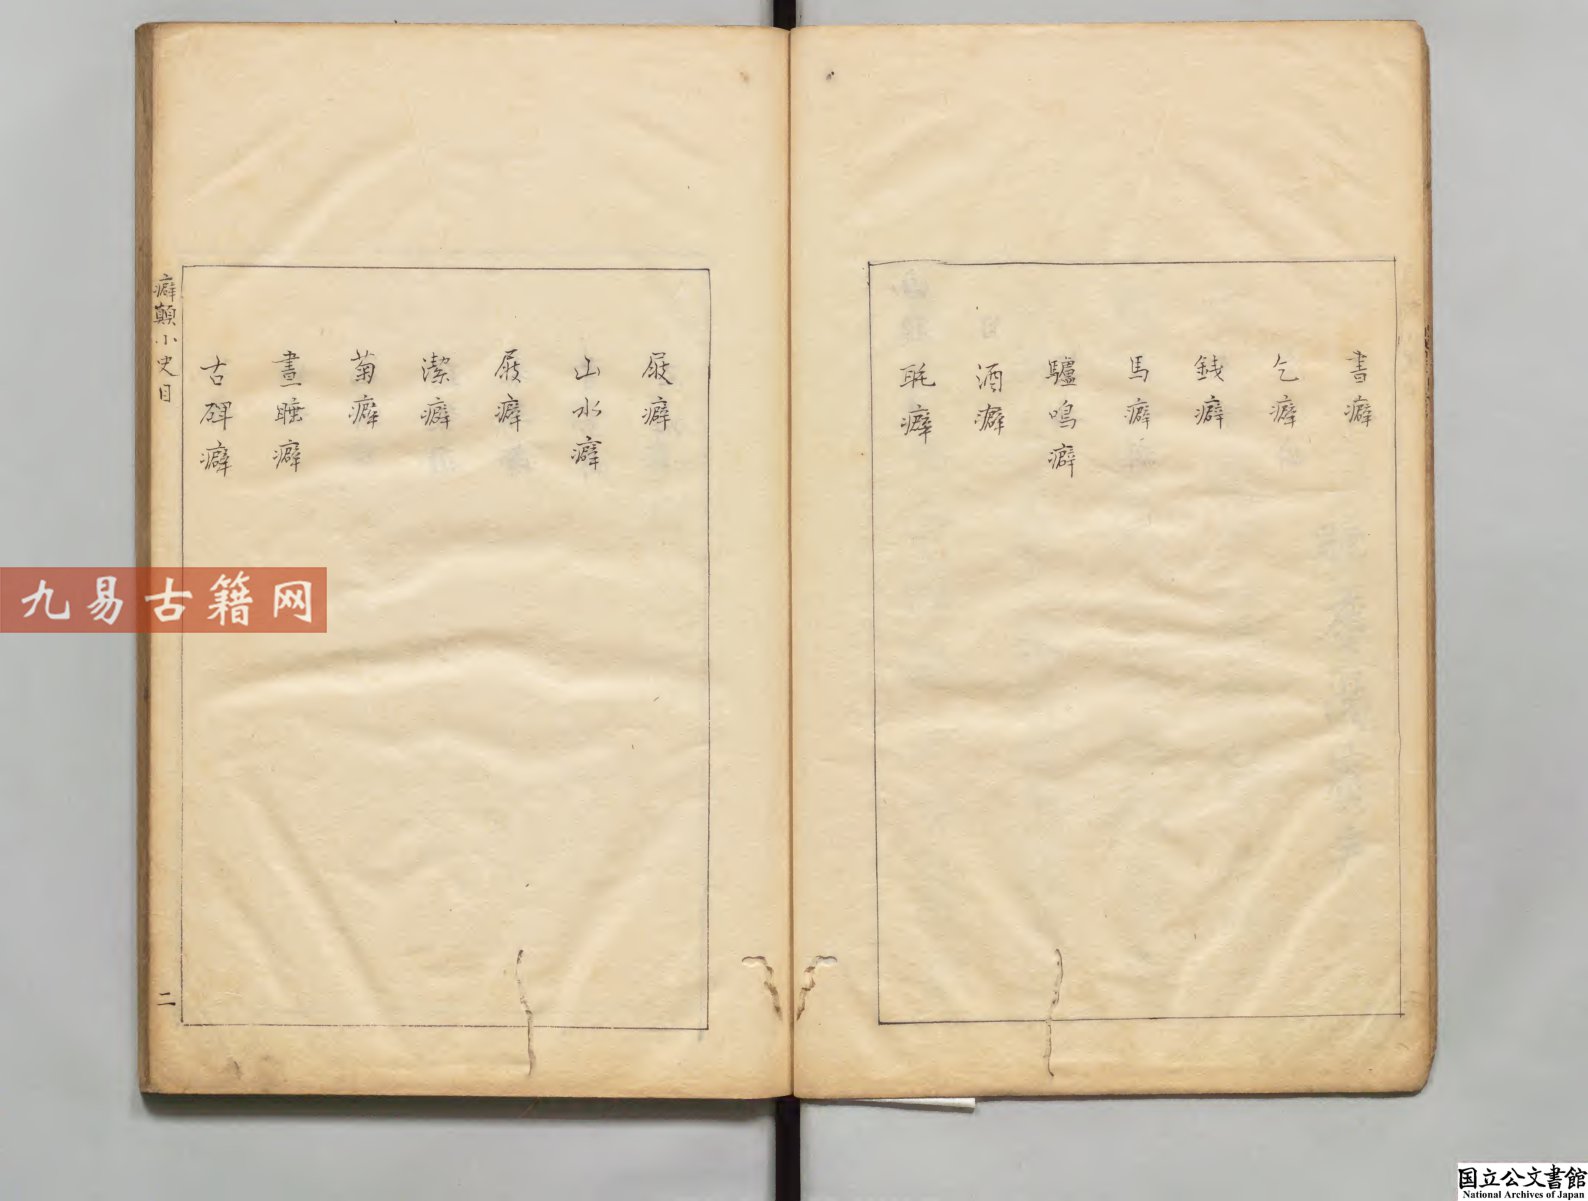 書癖
乞癖
銭癖
馬癖
驢鳴癖
酒癖
毦癖
屐癖
山水癖
屐癖
潔癖
菊癖
晝睡癖
古碑癖
癖顛小史目
二
九易古籍网
国立公文書館
National Archives of Japan